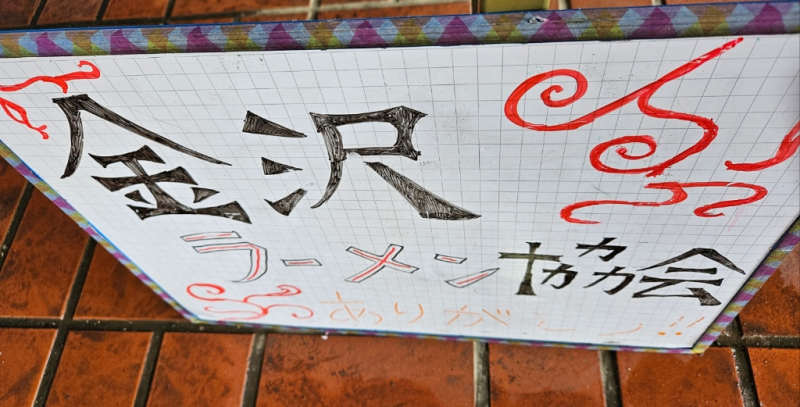 金沢
ラーメン協会
ありがとう!!